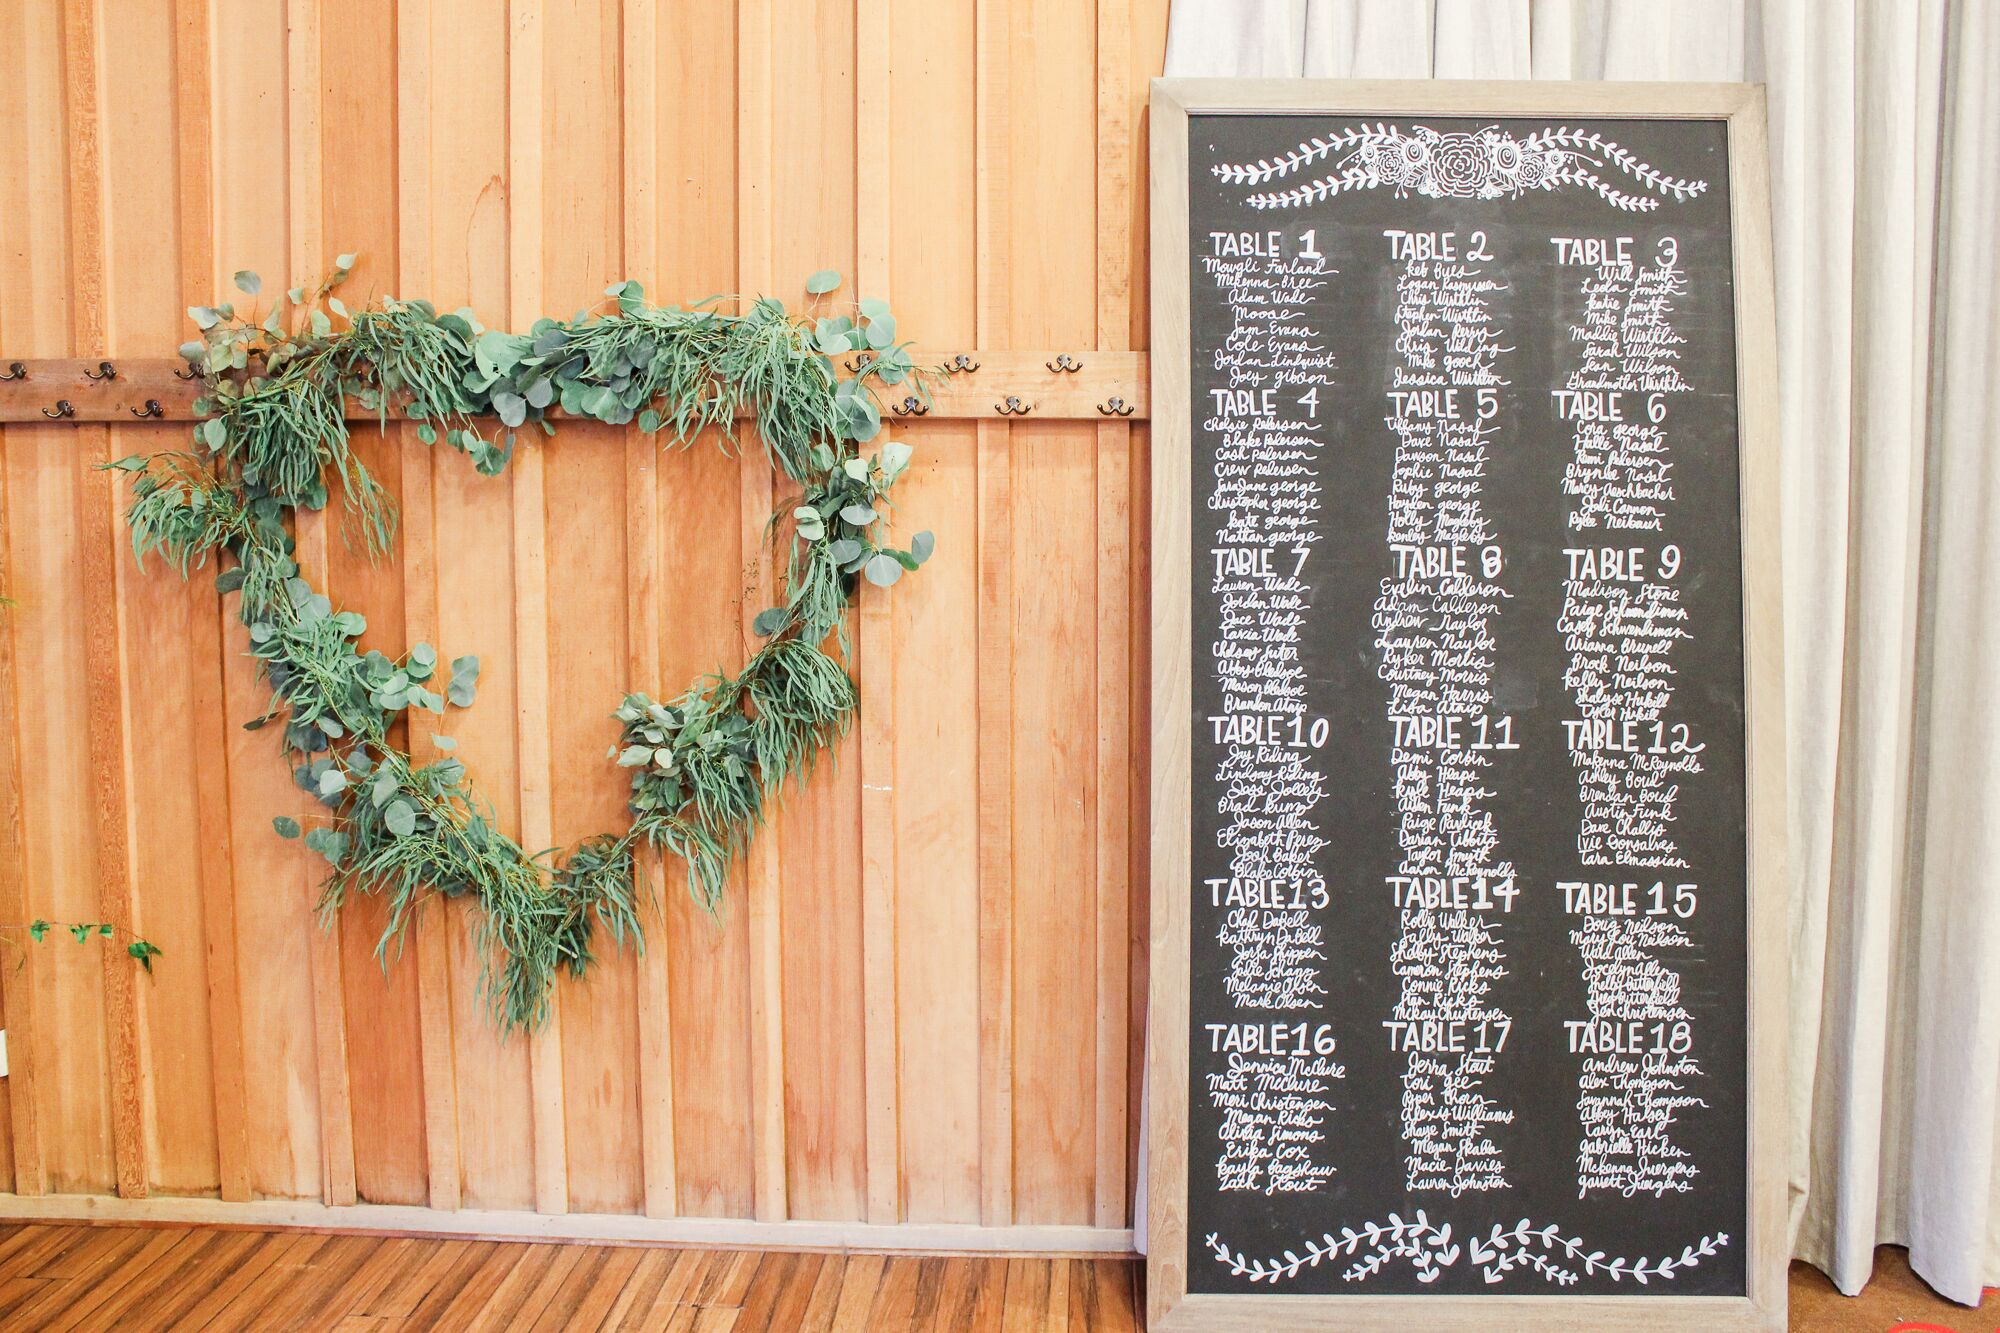 TABLE 1
Mowgli Farland
Mckenna Bree
Adam Wade
Moose
Sam Evans
Cole Evans
Jordan Linkquist
Joey gibson
TABLE 2
Keb Byes
Logan Rasmussen
Chris Wirthlin
Stephen Wirthlin
Jordan Perry
Chris Wilding
Mike gooch
Jessica Wirthlin
TABLE 3
Will Smith
Leola Smith
Katie Smith
Mike Smith
Maddie Wirthlin
Sarah Wilson
Sean Wilson
Grandmother Wirthlin
TABLE 4
Chelsie Pedersen
Blake Pedersen
Cash Pedersen
Crew Pedersen
SaraJane george
Christopher george
Kate george
Nathan george
TABLE 5
Tiffany Nasal
Dave Nasal
Dawson Nasal
Sophie Nasal
Ruby george
Hayden george
Holly Magleby
Kenley Magleby
TABLE 6
Cora george
Halle Nasal
Remi Pedersen
Brynlee Nasal
Marcy Aeschbacher
Jalli Cannon
Rylee Neibaur
TABLE 7
Lauren Wade
Jordan Wade
Jace Wade
Tarcia Wade
Chelsey Suter
Abby Bledsoe
Mason Bledsoe
Brandon Atnip
TABLE 8
Evelin Calderon
Adam Calderon
Andrew Naylor
Lauren Naylor
Ryker Morris
Courtney Morris
Megan Harris
Lisa Atnip
TABLE 9
Madison Stone
Paige Schwendiman
Casey Schwendiman
Arianna Brunell
Brock Neilson
Kelly Neilson
Shalyse Hukill
Tyler Hukill
TABLE 10
Jay Riding
Lindsay Riding
Jass Jolley
Brad Kump
Jason Allen
Elizabeth Perez
Josh Baker
Blake Corbin
TABLE 11
Demi Corbin
Abby Heaps
Kyle Heaps
Allen Funk
Paige Pavlicek
Darian Tibbits
Taylor Smyth
Aaron McReynolds
TABLE 12
Makenna McReynolds
Ashley Boud
Brendan Boud
Austin Funk
Dave Challis
Ivie Gonsalves
Tara Elmassian
TABLE 13
Chad DaBell
Kathryn DaBell
Jorja Shippen
Julie Schanz
Melanie Olsen
Mark Olsen
TABLE 14
Rollie Walker
Sally Walker
Shelby Stephens
Cameron Stephens
Connie Ricks
Stan Ricks
McKay Christensen
TABLE 15
Doug Neilson
Mary Lou Neilson
Wild Allen
Jocelyn Allen
Shelby Butterfield
Greg Butterfield
Jen Christensen
TABLE 16
Jennica McClure
Matt McClure
Meri Christensen
Megan Ricks
Alivia Simons
Erika Cox
Kayla Bagshaw
Zach Stout
TABLE 17
Jerra Stout
Tori gee
Piper Thorn
Alexis Williams
Shaye Smith
Megan Skabla
Macie Davies
Lauren Johnston
TABLE 18
Andrew Johnston
Alex Thompson
Savannah Thompson
Abbey Halsey
Taryn Earl
gabrielle Hicken
Mckenna Juergens
garrett Juergens